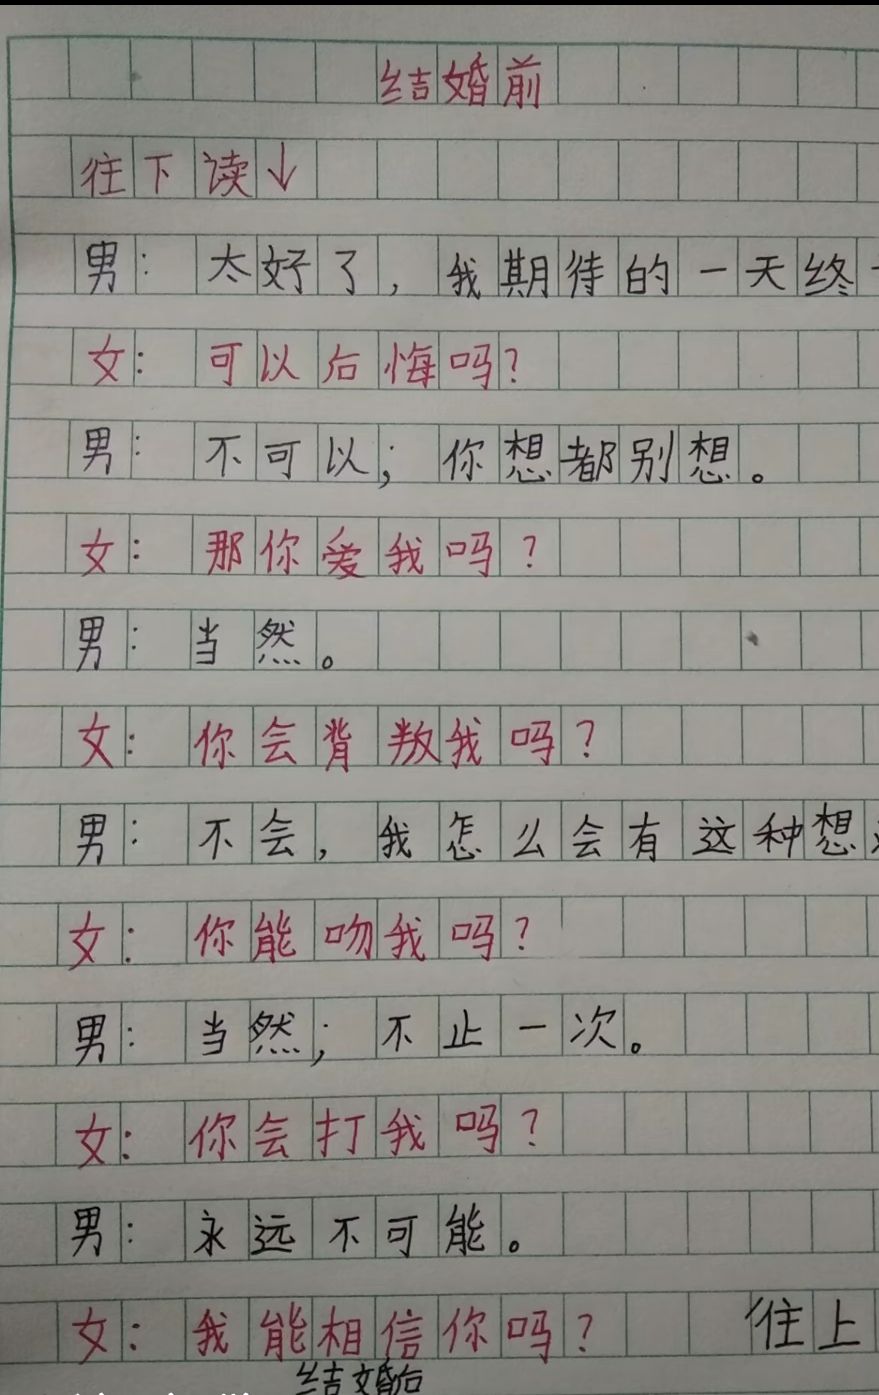 结婚前
往下读↓
男：太好了，我期待的一天终
女：可以后悔吗？
男：不可以；你想都别想。
女：那你爱我吗？
男：当然。
女：你会背叛我吗？
男：不会，我怎么会有这种想
女：你能吻我吗？
男：当然；不止一次。
女：你会打我吗？
男：永远不可能。
女：我能相信你吗？ 往上
结婚后